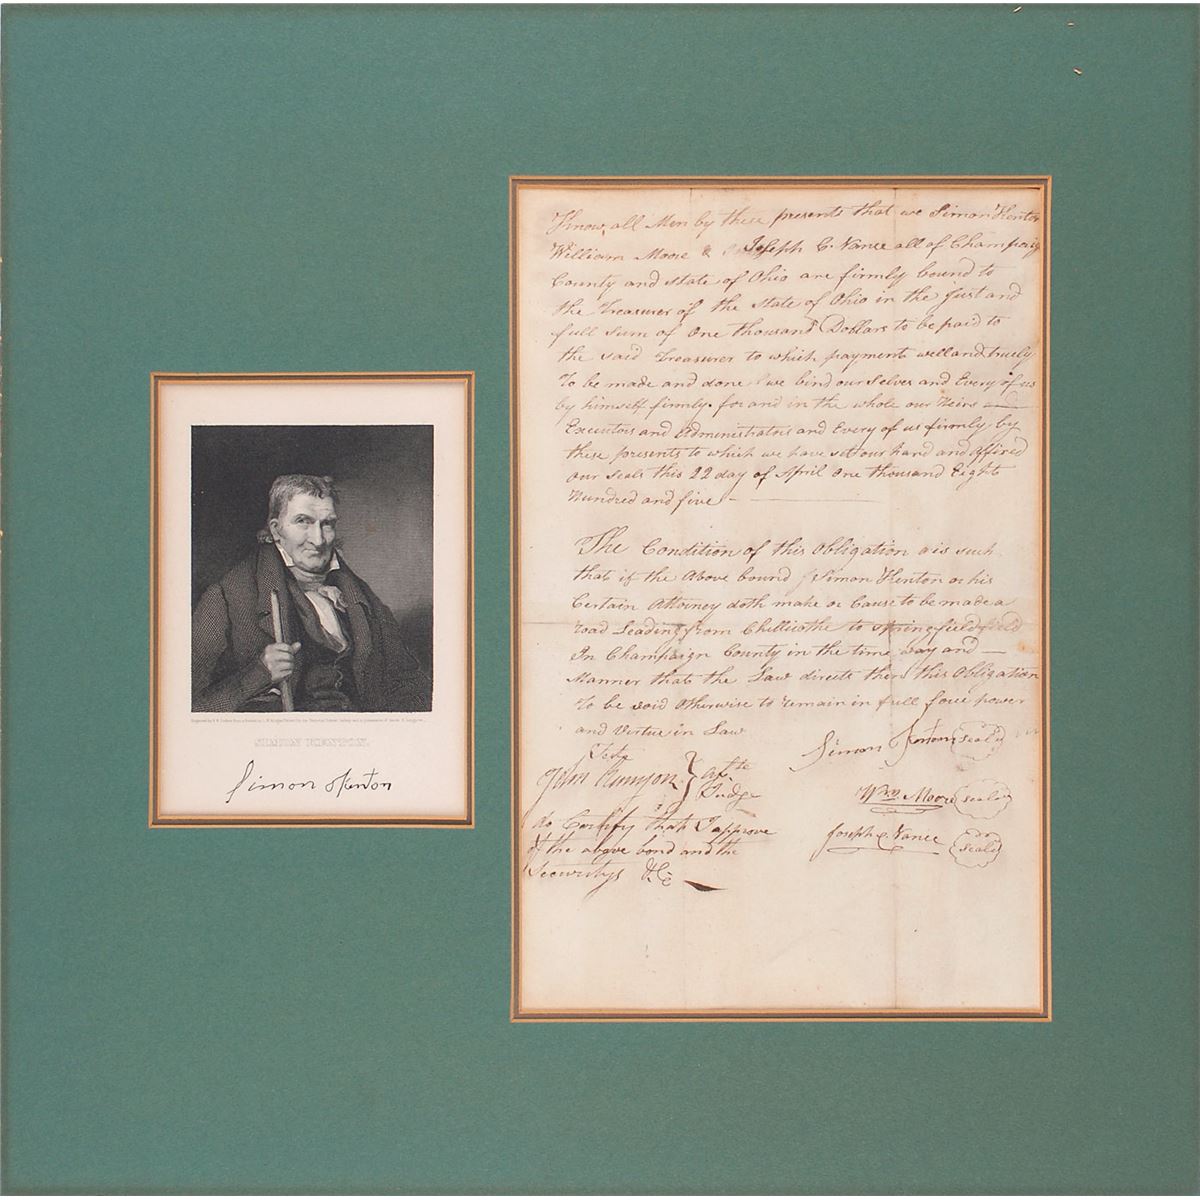 SIMON KENTON.
Simon Kenton
Know all Men by these presents that we Simon Kenton
William Moore & Joseph C. Vance all of Champaig
County and State of Ohio are firmly bound to
the Treasurer of the State of Ohio in the Just and
full Sum of One thousand Dollars to be paid to
the said Treasurer to which payment well and truely
to be made and done we bind our Selves and Every of us
by himself firmly for and in the whole our Heirs
Executors and Administrators and Every of us firmly by
these presents to which we have set our hand and affixed
our seals this 22 day of April One thousand Eight
Hundred and five -
The Condition of this Obligation is such
that if the Above bound Simon Kenton or his
Certain Attorney doth make or Cause to be made a
road Leading from Chillicothe to Springfield
In Champaign County in the time way and —
Manner that the Law directs then this Obligation
to be void Otherwise to remain in full force power
and Virtue in Law
Simon Kenton seal
Teste
John Runyon } Asste Judge
Wm. Moore seal
Joseph C. Vance seal
do Certify that I approve
of the above bond and the
Securitys &C